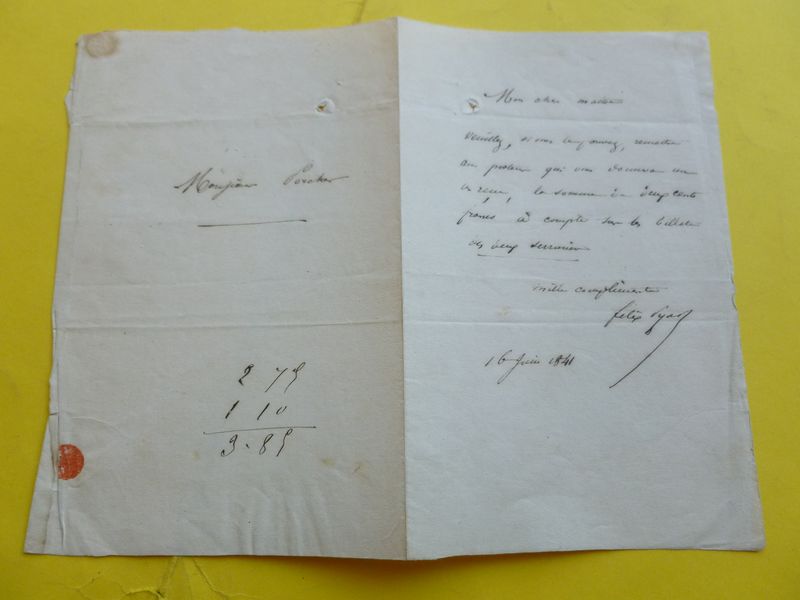 Monsieur Porcher
2 75
1 10
3.85
Mon cher maitre
veuillez, si vous le pouvez, remettre
au porteur qui vous donnera un
un recu, la somme de deux cents
francs à compte sur les billets
des deux serruriers
mille compliments
felix Pyat
16 Juin 1841